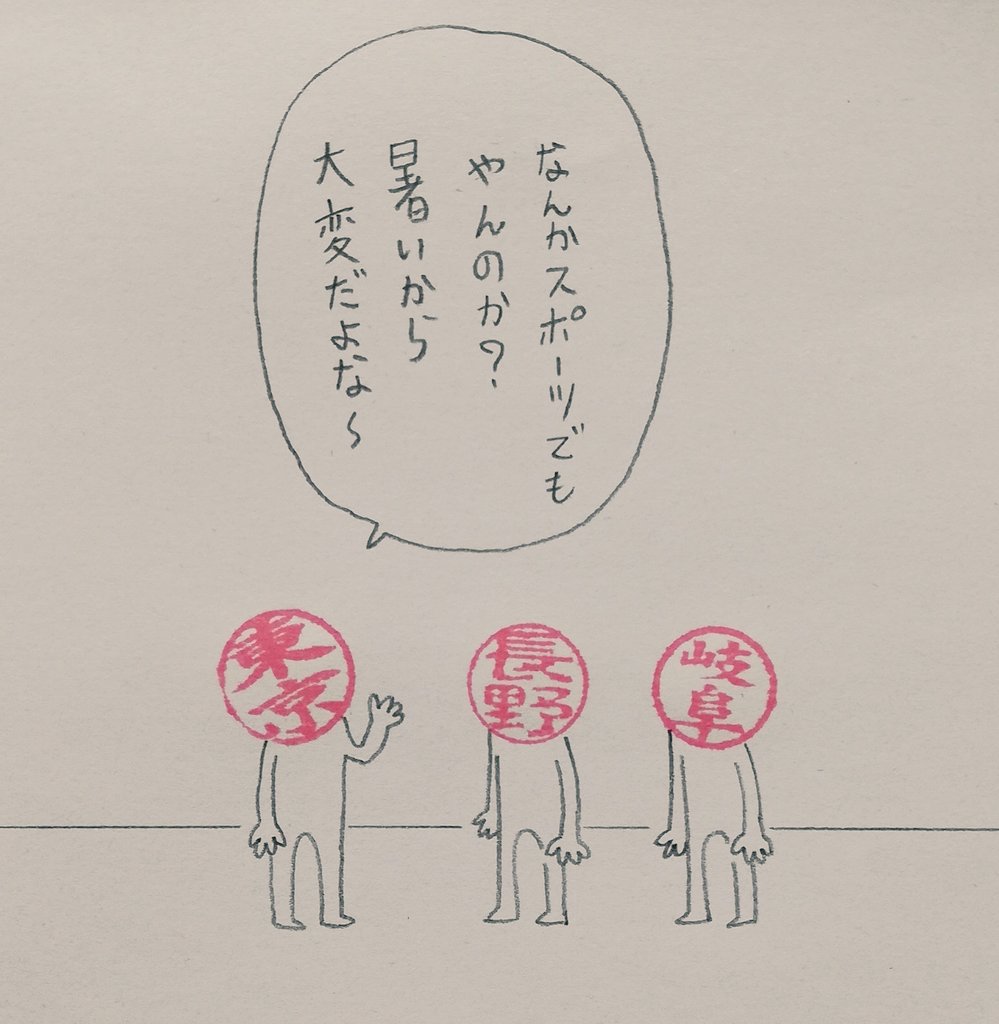 なんかスポーツでも
やんのか?
暑いから
大変だよな〜
東京
長野
岐阜